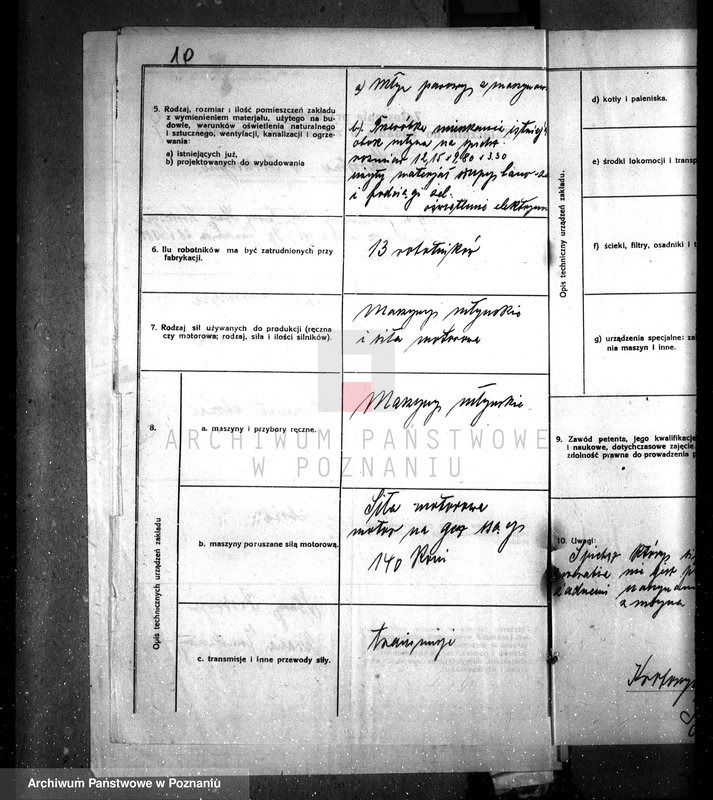 10
5. Rodzaj, rozmiar i ilość pomieszczeń zakładu
z wymienieniem materjału, użytego na bu-
dowle, warunków oświetlenia naturalnego
i sztucznego, wentylacji, kanalizacji i ogrze-
wania:
a) istniejących już,
b) projektowanych do wybudowania
a) Młyn parowy
b)
mieszkanie
młyna na
rozmiar 12,15
materjał
i
oświetlenie
6. Ilu robotników ma być zatrudnionych przy
fabrykacji.
13 robotników
7. Rodzaj sił używanych do produkcji (ręczna
czy motorowa; rodzaj, siła i ilości silników).
Maszyny młyńskie
i siła motorowa
8.
Opis technicznych urządzeń zakładu
a. maszyny i przybory ręczne.
Maszyny młyńskie
b. maszyny poruszane siłą motorową.
Siła motorowa
motor na gaz
140 Koni
c. transmisje i inne przewody siły.
transmisji
Opis techniczny urządzeń zakładu.
d) kotły i paleniska.
e) środki lokomocji i transp
f) ścieki, filtry, osadniki i
g) urządzenia specjalne: za
nia maszyn i inne.
9. Zawód petenta, jego kwalifikacje
i naukowe, dotychczasowe zajęcie
zdolność prawna do prowadzenia p
10. Uwagi:
który
nie jest
żadnemi
z młyna
ARCHIWUM PAŃSTWOWE
W POZNANIU
Archiwum Państwowe w Poznaniu